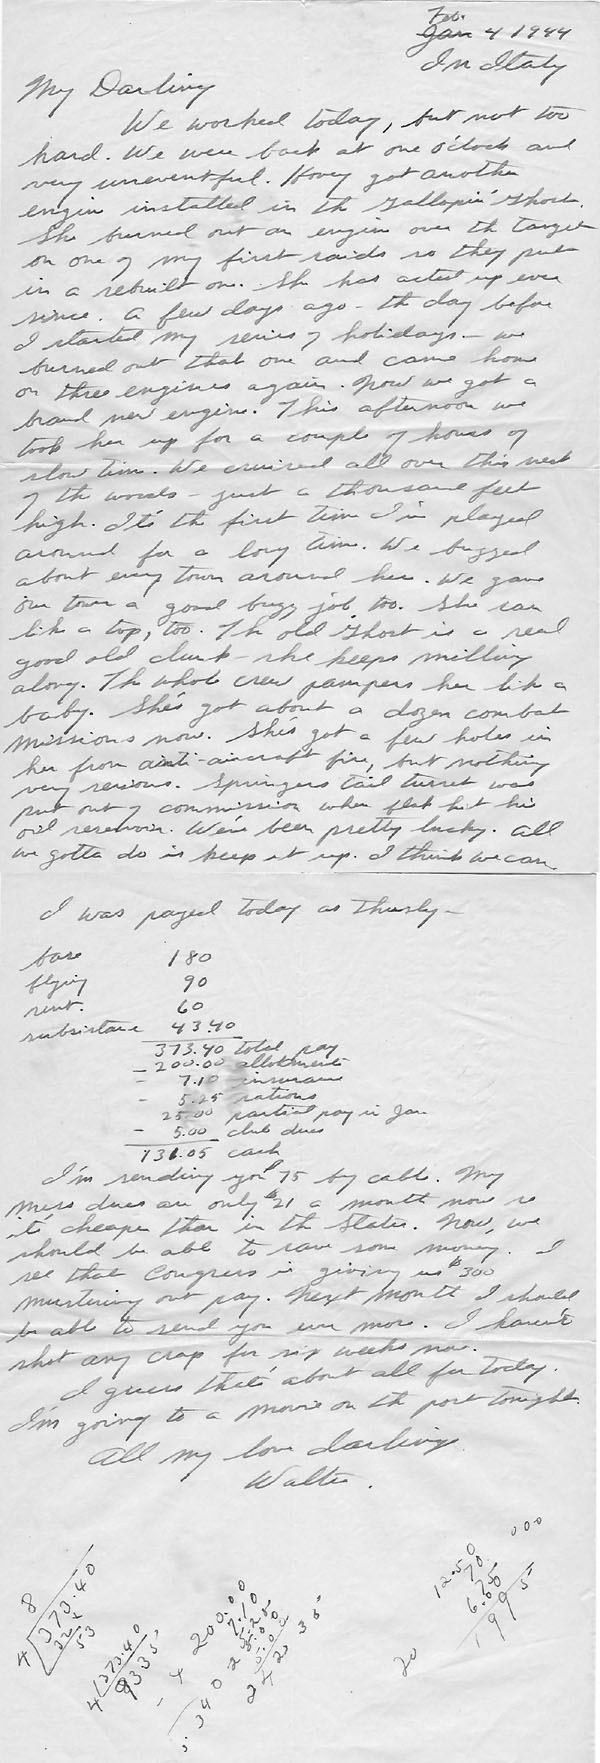 Feb.
Jan 4 1944
In Italy
My Darling
We worked today, but not too
hard. We were back at one o'clock and
very uneventful. Hovey got another
engin installed in th Gallopin' Ghost.
She burned out an engin over th target
on one of my first raids so they put
in a rebuilt one. She has acted up ever
since. A few days ago - th day before
I started my series of holidays - we
burned out that one and came home
on three engines again. Now we got a
brand new engine. This afternoon we
took her up for a couple of hours of
slow tim. We cruised all over this neck
of th woods - just a thousand feet
high. It's th first tim I'v played
around for a long tim. We buzzed
about every town around her. We gave
our town a good buzz job too. She ran
lik a top, too. Th old Ghost is a real
good old clunk - she keeps milling
along. Th whole crew pampers her lik a
baby. She's got about a dozen combat
missions now. She's got a few holes in
her from anti-aircraft fire, but nothing
very serious. Springers tail turret was
put out of commission when flak hit his
oil reservoir. We've been pretty lucky. All
we gotta do is keep it up. I think we can
I was payed today as thusly -
base 180
flying 90
rent. 60
subsistance 43.40
373.40 total pay
- 200.00 allotment
- 7.10 insurance
- 5.25 rations
25.00 partial pay in Jan
- 5.00 club dues
131.05 cash
I'm sending you $75 by cable. My
mess dues are only $21 a month now so
it's cheaper than in th States. Now, we
should be able to save som money. I
see that Congress is giving us $300
mustering out pay. Next month I should
be able to send you even more. I haven't
shot any crap for six weeks now.
I guess that's about all for today.
I'm going to a movie on th post tonight.
All my love darling
Walter.
8
4 373.40
53
4 373.40
9335
200.00
7.10
5.25
5.00
242 35
340
12.50
70
6.75
6.00
1995
000
20